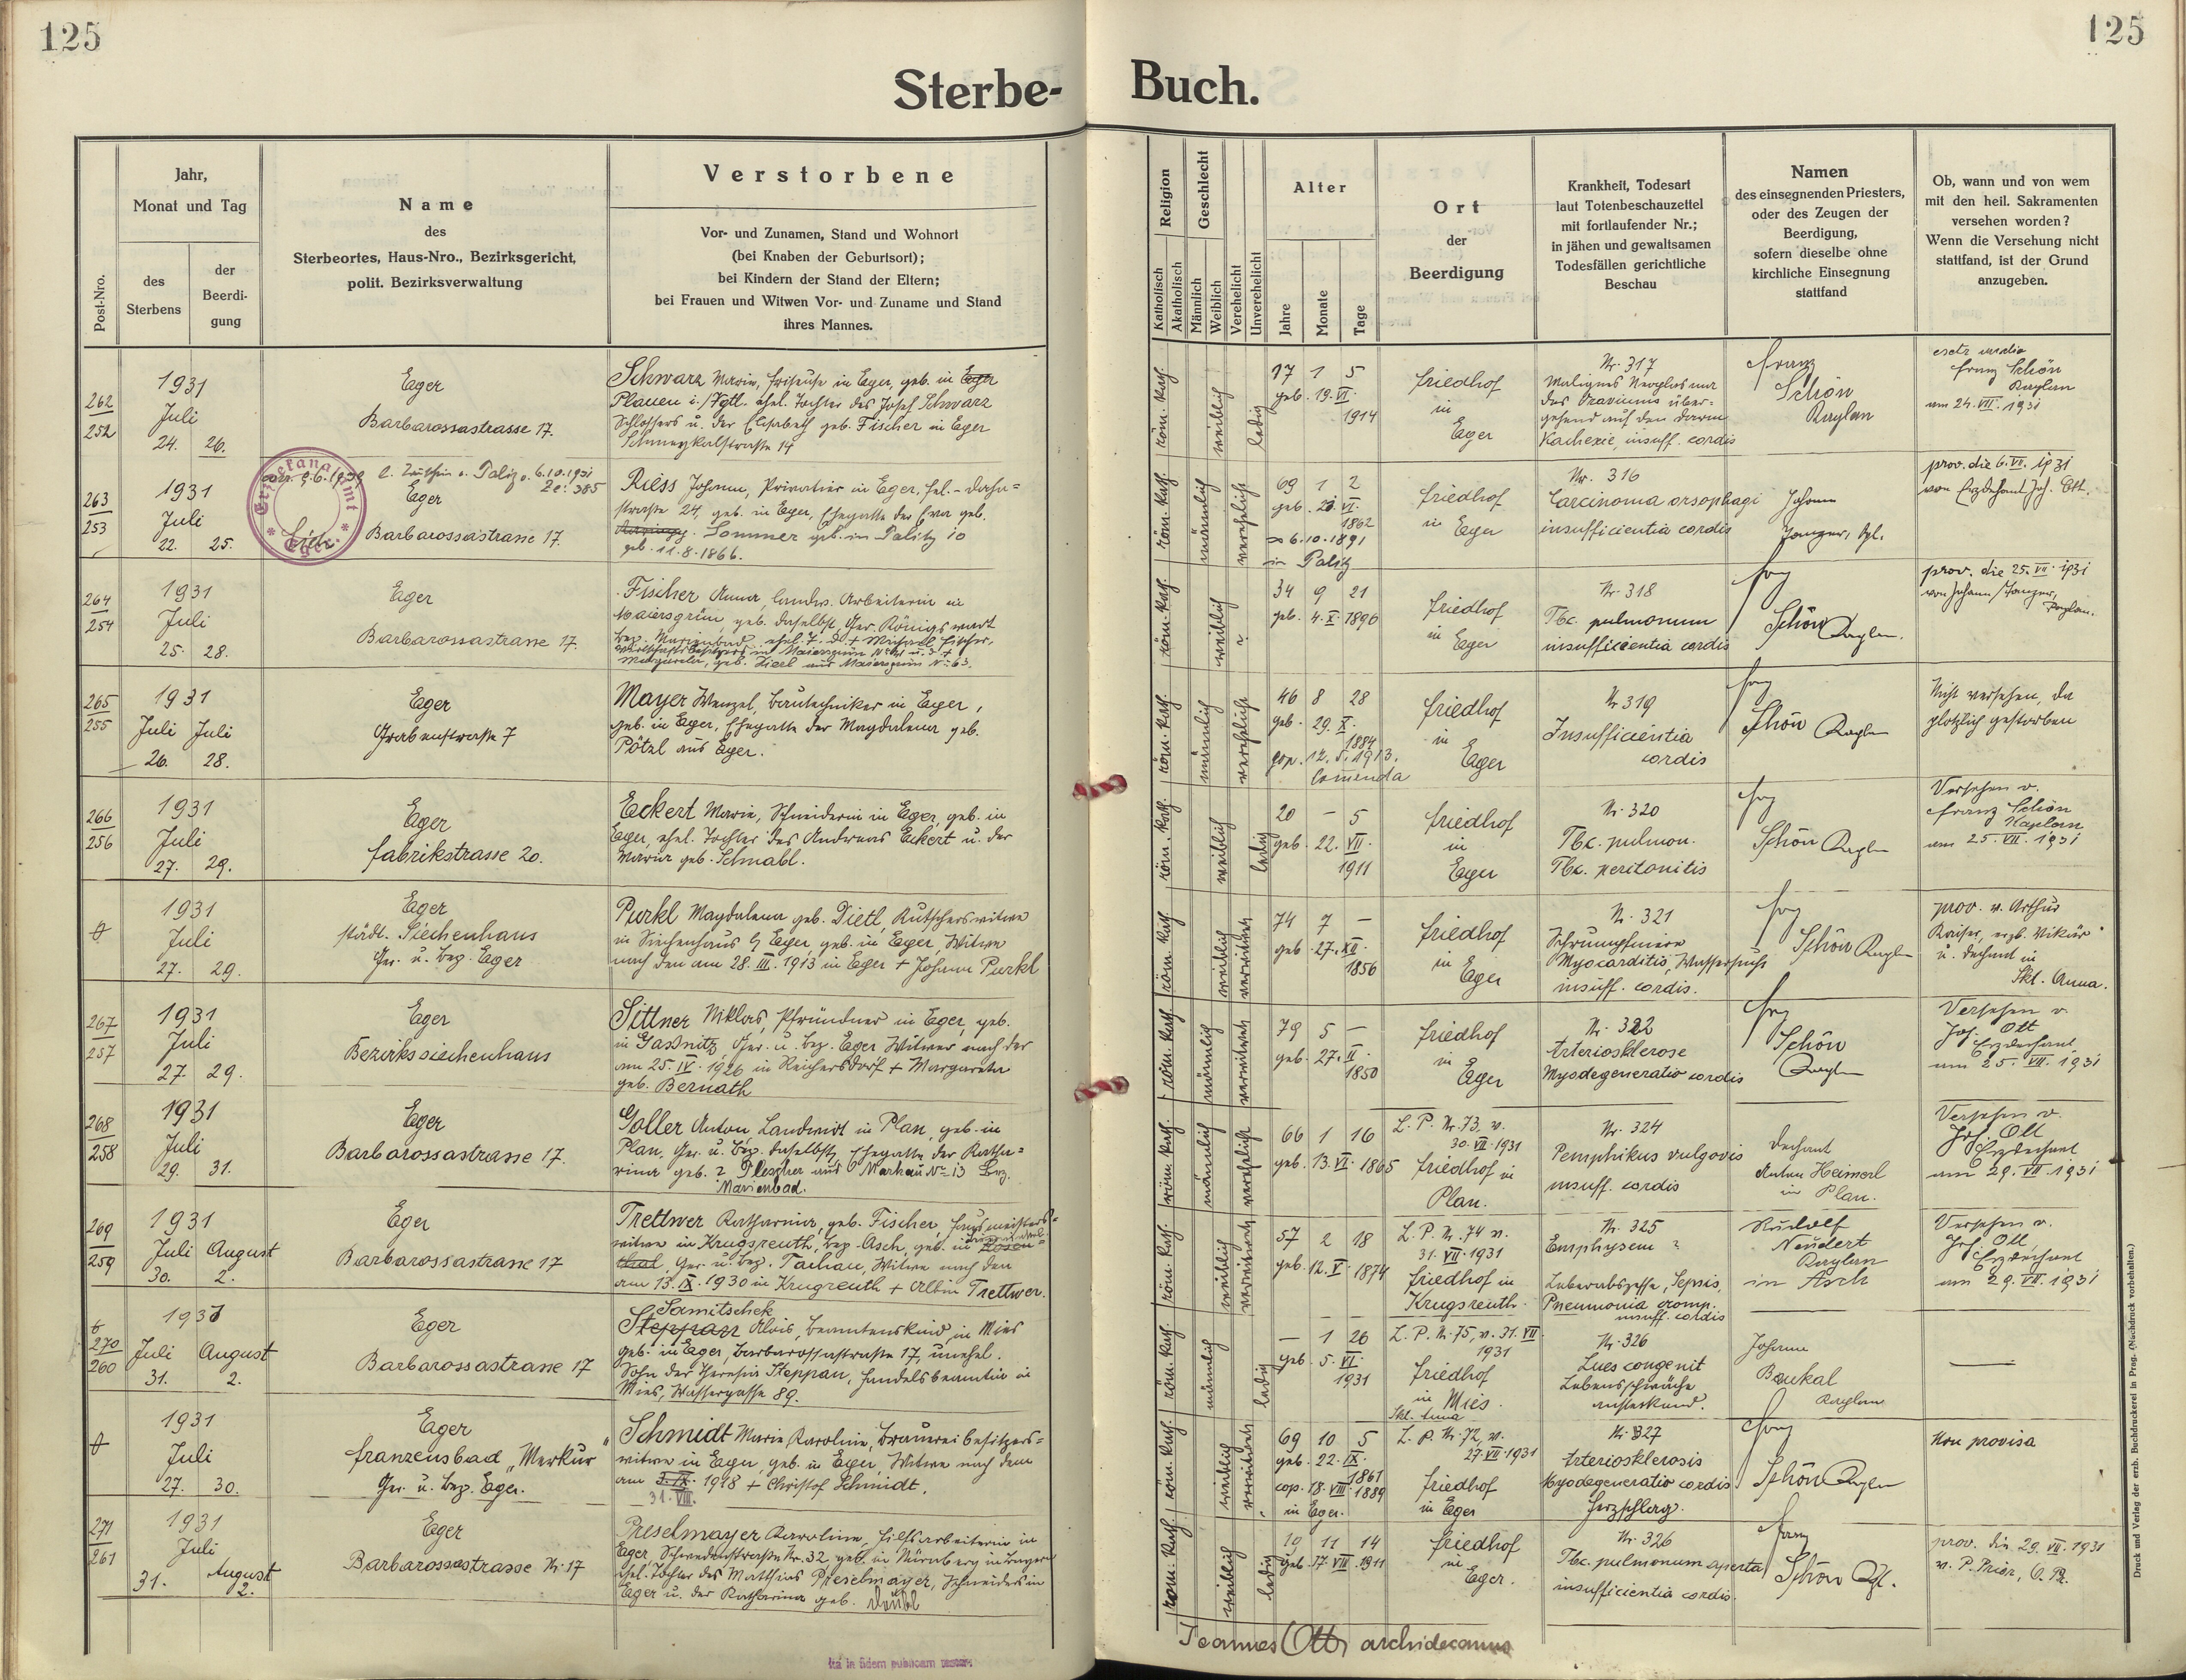 125
125
Sterbe-
Buch.
Post-Nro.
Jahr,
Monat und Tag
des
Sterbens
der
Beerdi-
gung
Name
des
Sterbeortes, Haus-Nro., Bezirksgericht,
polit. Bezirksverwaltung
Verstorbene
Vor- und Zunamen, Stand und Wohnort
(bei Knaben der Geburtsort);
bei Kindern der Stand der Eltern;
bei Frauen und Witwen Vor- und Zuname und Stand
ihres Mannes.
Religion
Katholisch
Akatholisch
Geschlecht
Männlich
Weiblich
Verehelicht
Unverehelicht
Alter
Jahre
Monate
Tage
Ort
der
Beerdigung
Krankheit, Todesart
laut Totenbeschauzettel
mit fortlaufender Nr.;
in jähen und gewaltsamen
Todesfällen gerichtliche
Beschau
Namen
des einsegnenden Priesters,
oder des Zeugen der
Beerdigung,
sofern dieselbe ohne
kirchliche Einsegnung
stattfand
Ob, wann und von wem
mit den heil. Sakramenten
versehen worden?
Wenn die Versehung nicht
stattfand, ist der Grund
anzugeben.
262
252
1931
Juli
24. 26.
Eger
Barbarossastrasse 17.
Schwarz Marie, Friseuse in Eger, geb. in Eger
Plauen i./Vgtl. ehel. Tochter des Josef Schwarz
Schlossers u. der Elisabeth geb. Fischer in Eger
röm. kath.
weiblich
ledig
17 1 5
geb. 19. VI.
1914
Friedhof
in
Eger
Nr. 317
gehend auf den Darm
Kachexie, insuff. cordis
Franz
Schön
Kaplan
Franz Schön
Kaplan
am 24. VII. 1931
263
253
1931
Juli
22. 25.
Eger
Barbarossastrasse 17.
Riess Johann, Privatier in Eger,
straße 24, geb. in Eger, Ehegatte der Eva geb.
Sommer geb. in Palitz 10
geb. 11.8.1866.
röm. kath.
männlich
verehelicht
69 1 2
geb. 20. VI.
1862
∞ 6.10.1891
in Palitz
Friedhof
in
Eger
Nr. 316
Carcinoma oesophagi
insufficientia cordis
Johann
prov. die 6. VII. 1931
von Erzdechant Joh. Ott.
264
254
1931
Juli
25. 28.
Eger
Barbarossastrasse 17.
Fischer Anna, landw. Arbeiterin in
Maiersgrün, geb. daselbst, Ger. Königswart
röm. kath.
weiblich
34 9 21
geb. 4. X. 1896
Friedhof
in
Eger
Nr. 318
Tbc. pulmonum
insufficientia cordis
Franz
Schön Kaplan.
prov. die 25. VII. 1931
265
255
1931
Juli Juli
26. 28.
Eger
Grabenstraße 7
Mayer Wenzel, Bautechniker in Eger,
geb. in Eger, Ehegatte der Magdalena geb.
Pötzl aus Eger.
röm. kath.
männlich
verehelicht
46 8 28
geb. 29. X.
1884
cop. 12. 5. 1913.
Friedhof
in
Eger
Nr 319
Insufficientia
cordis
Franz
Schön Kaplan
Nicht versehen, da
plötzlich gestorben
266
256
1931
Juli
27. 29.
Eger
Fabrikstrasse 20.
Eckert Marie, Schneiderin in Eger, geb. in
Eger, ehel. Tochter des Andreas Eckert u. der
Maria geb. Schnabl.
röm. kath.
weiblich
ledig
20 – 5
geb. 22. VII.
1911
Friedhof
in
Eger
Nr. 320
Tbc. pulmon.
Tbc. peritonitis
Franz
Schön Kaplan
Versehen v.
Franz Schön
Kaplan
am 25. VII. 1931
1931
Juli
27. 29.
Eger
städt. Siechenhaus
Ger. u. Bez. Eger
Purkl Magdalena geb. Dietl, Kutscherswitwe
in Siechenhaus Eger, geb. in Eger, Witwe
nach den am 28. III. 1913 in Eger + Johann Purkl
röm. kath.
weiblich
verwitwet
74 7 –
geb. 27. XII.
1856
Friedhof
in
Eger
Nr. 321
Schrumpfniere
Myocarditis, Wassersucht
insuff. cordis.
Franz
Schön Kaplan
prov. v. Arthur
Kaiser, erzb. Vikär
u. Dechant in
Skt. Anna.
267
257
1931
Juli
27. 29.
Eger
Bezirkssiechenhaus
Sittner Niklas, Pfründner in Eger, geb.
in Gaßnitz, Ger. u. Bez. Eger Witwer nach der
am 25. IV. 1926 in Reichersdorf + Margareta
geb. Bernath
röm. kath.
männlich
verwitwet
79 5 –
geb. 27. II.
1850
Friedhof
in
Eger
Nr. 322
Arteriosklerose
Myodegeneratio cordis
Franz
Schön
Kaplan
Versehen v.
Joh. Ott
Erzdechant
am 25. VII. 1931
268
258
1931
Juli
29. 31.
Eger
Barbarossastrasse 17.
Goller Anton, Landwirt in Plan, geb. in
Plan, Ger. u. Bez. daselbst, Ehegatte der Katha-
rina geb.
Marienbad.
röm. kath.
männlich
verehelicht
66 1 16
geb. 13. VI. 1865
L. P. Nr. 73, v.
30. VII. 1931
Friedhof in
Plan.
Nr. 324
Pemphikus vulgaris
insuff. cordis
Dechant
Anton Heimerl
in Plan.
Versehen v.
Joh. Ott
Erzdechant
am 29. VII. 1931
269
259
1931
Juli August
30. 2.
Eger
Barbarossastrasse 17
Trettwer Katharina, geb. Fischer, Hausmeisters-
witwe in Krugsreuth, Bez. Asch, geb. in Rosen-
thal, Ger. u. Bez. Tachau, Witwe nach dem
am 13. IX. 1930 in Krugreuth + Albin Trettwer.
röm. kath.
weiblich
verwitwet
57 2 18
geb. 12. V. 1874
L. P. Nr. 74 v.
31. VII. 1931
Friedhof in
Krugsreuth.
Nr. 325
Emphysem
Leberabszesse, Sepsis,
Pneumonia
insuff. cordis
Rudolf
Neudert
Kaplan
in Asch
Versehen v.
Joh. Ott,
Erzdechant
am 29. VII. 1931
270
260
1931
Juli August
31. 2.
Eger
Barbarossastrasse 17
Samitschek
Steppan Alois, Beamtenskind, in Mies
geb. in Eger, Barbarossastraße 17, unehel.
Sohn der Theresia Steppan, Handelsbeamtin in
Mies, Wassergasse 89.
röm. kath.
männlich
ledig
– 1 26
geb. 5. VI.
1931
L. P. Nr. 75, v. 31. VII
1931
Friedhof
in Mies.
Nr. 326
Lues congenit
Lebensschwäche
Johann
Kaplan
1931
Juli
27. 30.
Eger
Franzensbad „Merkur"
Ger. u. Bez. Eger.
Schmidt Marie Karoline, Brauereibesitzers-
witwe in Eger, geb. in Eger, Witwe nach dem
am 3. IX. 1918 + Christof Schmidt.
31. VIII.
röm. kath.
weiblich
verwitwet
69 10 5
geb. 22. IX.
1861
cop. 18. VIII. 1889
in Eger.
L. P. Nr. 72, v.
27. VII. 1931
Friedhof
in Eger
Nr. 327
Arteriosklerosis
Myodegeneratio cordis
Herzschlag.
Franz
Schön Kaplan
Non provisa
271
261
1931
Juli
August
31. 2.
Eger
Barbarossastrasse Nr. 17
Preselmayer Karoline, Hilfsarbeiterin in
Eger, Schwedenstraße Nr. 32, geb. in Nürnberg in Bayern
ehel. Tochter des Matthias Preselmayer, Schneiders in
Eger u. der Katharina geb.
röm. kath.
weiblich
ledig
19 11 14
geb. 17. VIII. 1911
Friedhof
in
Eger.
Nr. 326
Tbc. pulmonum aperta
insufficientia cordis.
Franz
Schön Kpl.
prov. die 29. VII. 1931
v. P. Prior,
Joannes Ott, archidecanus
Druck und Verlag der erzb. Buchdruckerei in Prag. (Nachdruck vorbehalten.)